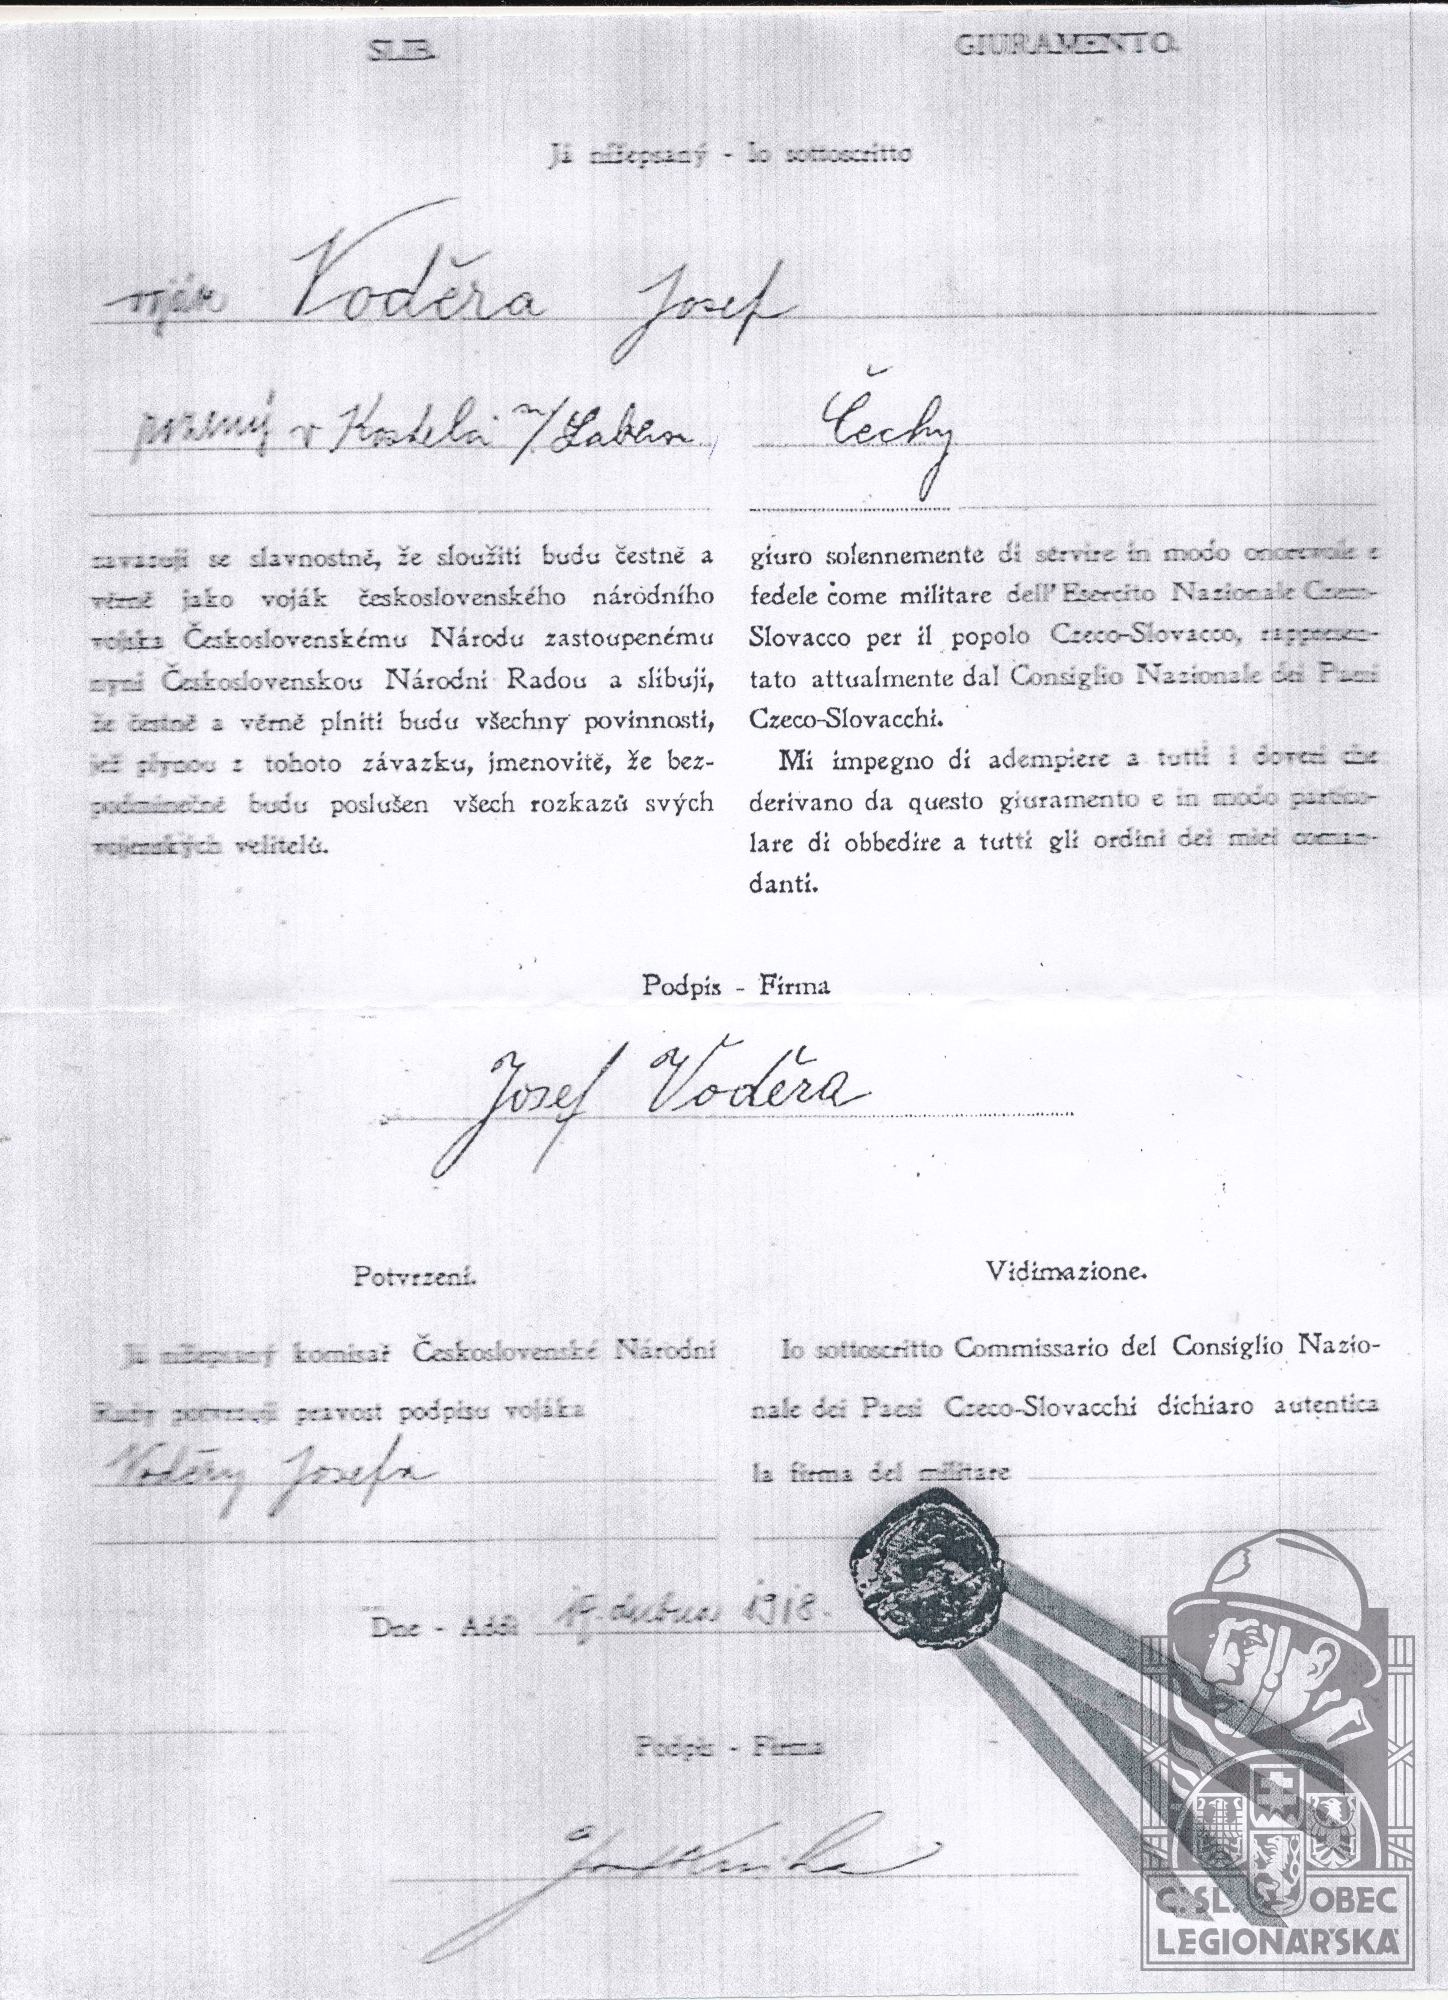 SLIB.
GIURAMENTO.
Já nížepsaný - Io sottoscritto
voják Voděra Josef
v Kostelci n/Labem Čechy
zavazuji se slavnostně, že sloužiti budu čestně a
věrně jako voják československého národního
vojska Československému Národu zastoupenému
nyní Československou Národní Radou a slibuji,
že čestně a věrně plniti budu všechny povinnosti,
jež plynou z tohoto závazku, jmenovitě, že bez-
podmínečně budu poslušen všech rozkazů svých
vojenských velitelů.
giuro solennemente di servire in modo onorevole e
fedele come militare dell' Esercito Nazionale Czeco-
Slovacco per il popolo Czeco-Slovacco, rappresen-
tato attualmente dal Consiglio Nazionale dei Paesi
Czeco-Slovacchi.
Mi impegno di adempiere a tutti i doveri che
derivano da questo giuramento e in modo partico-
lare di obbedire a tutti gli ordini dei miei coman-
danti.
Podpis - Firma
Josef Voděra
Potvrzení.
Já nížepsaný komisař Československé Národní
Rady potvrzuji pravost podpisu vojáka
Voděry Josefa
Vidimazione.
Io sottoscritto Commissario del Consiglio Nazio-
nale dei Paesi Czeco-Slovacchi dichiaro autentica
la firma del militare
Dne - Addì 17. dubna 1918.
Podpis - Firma
Č. SL. OBEC
LEGIONÁŘSKÁ